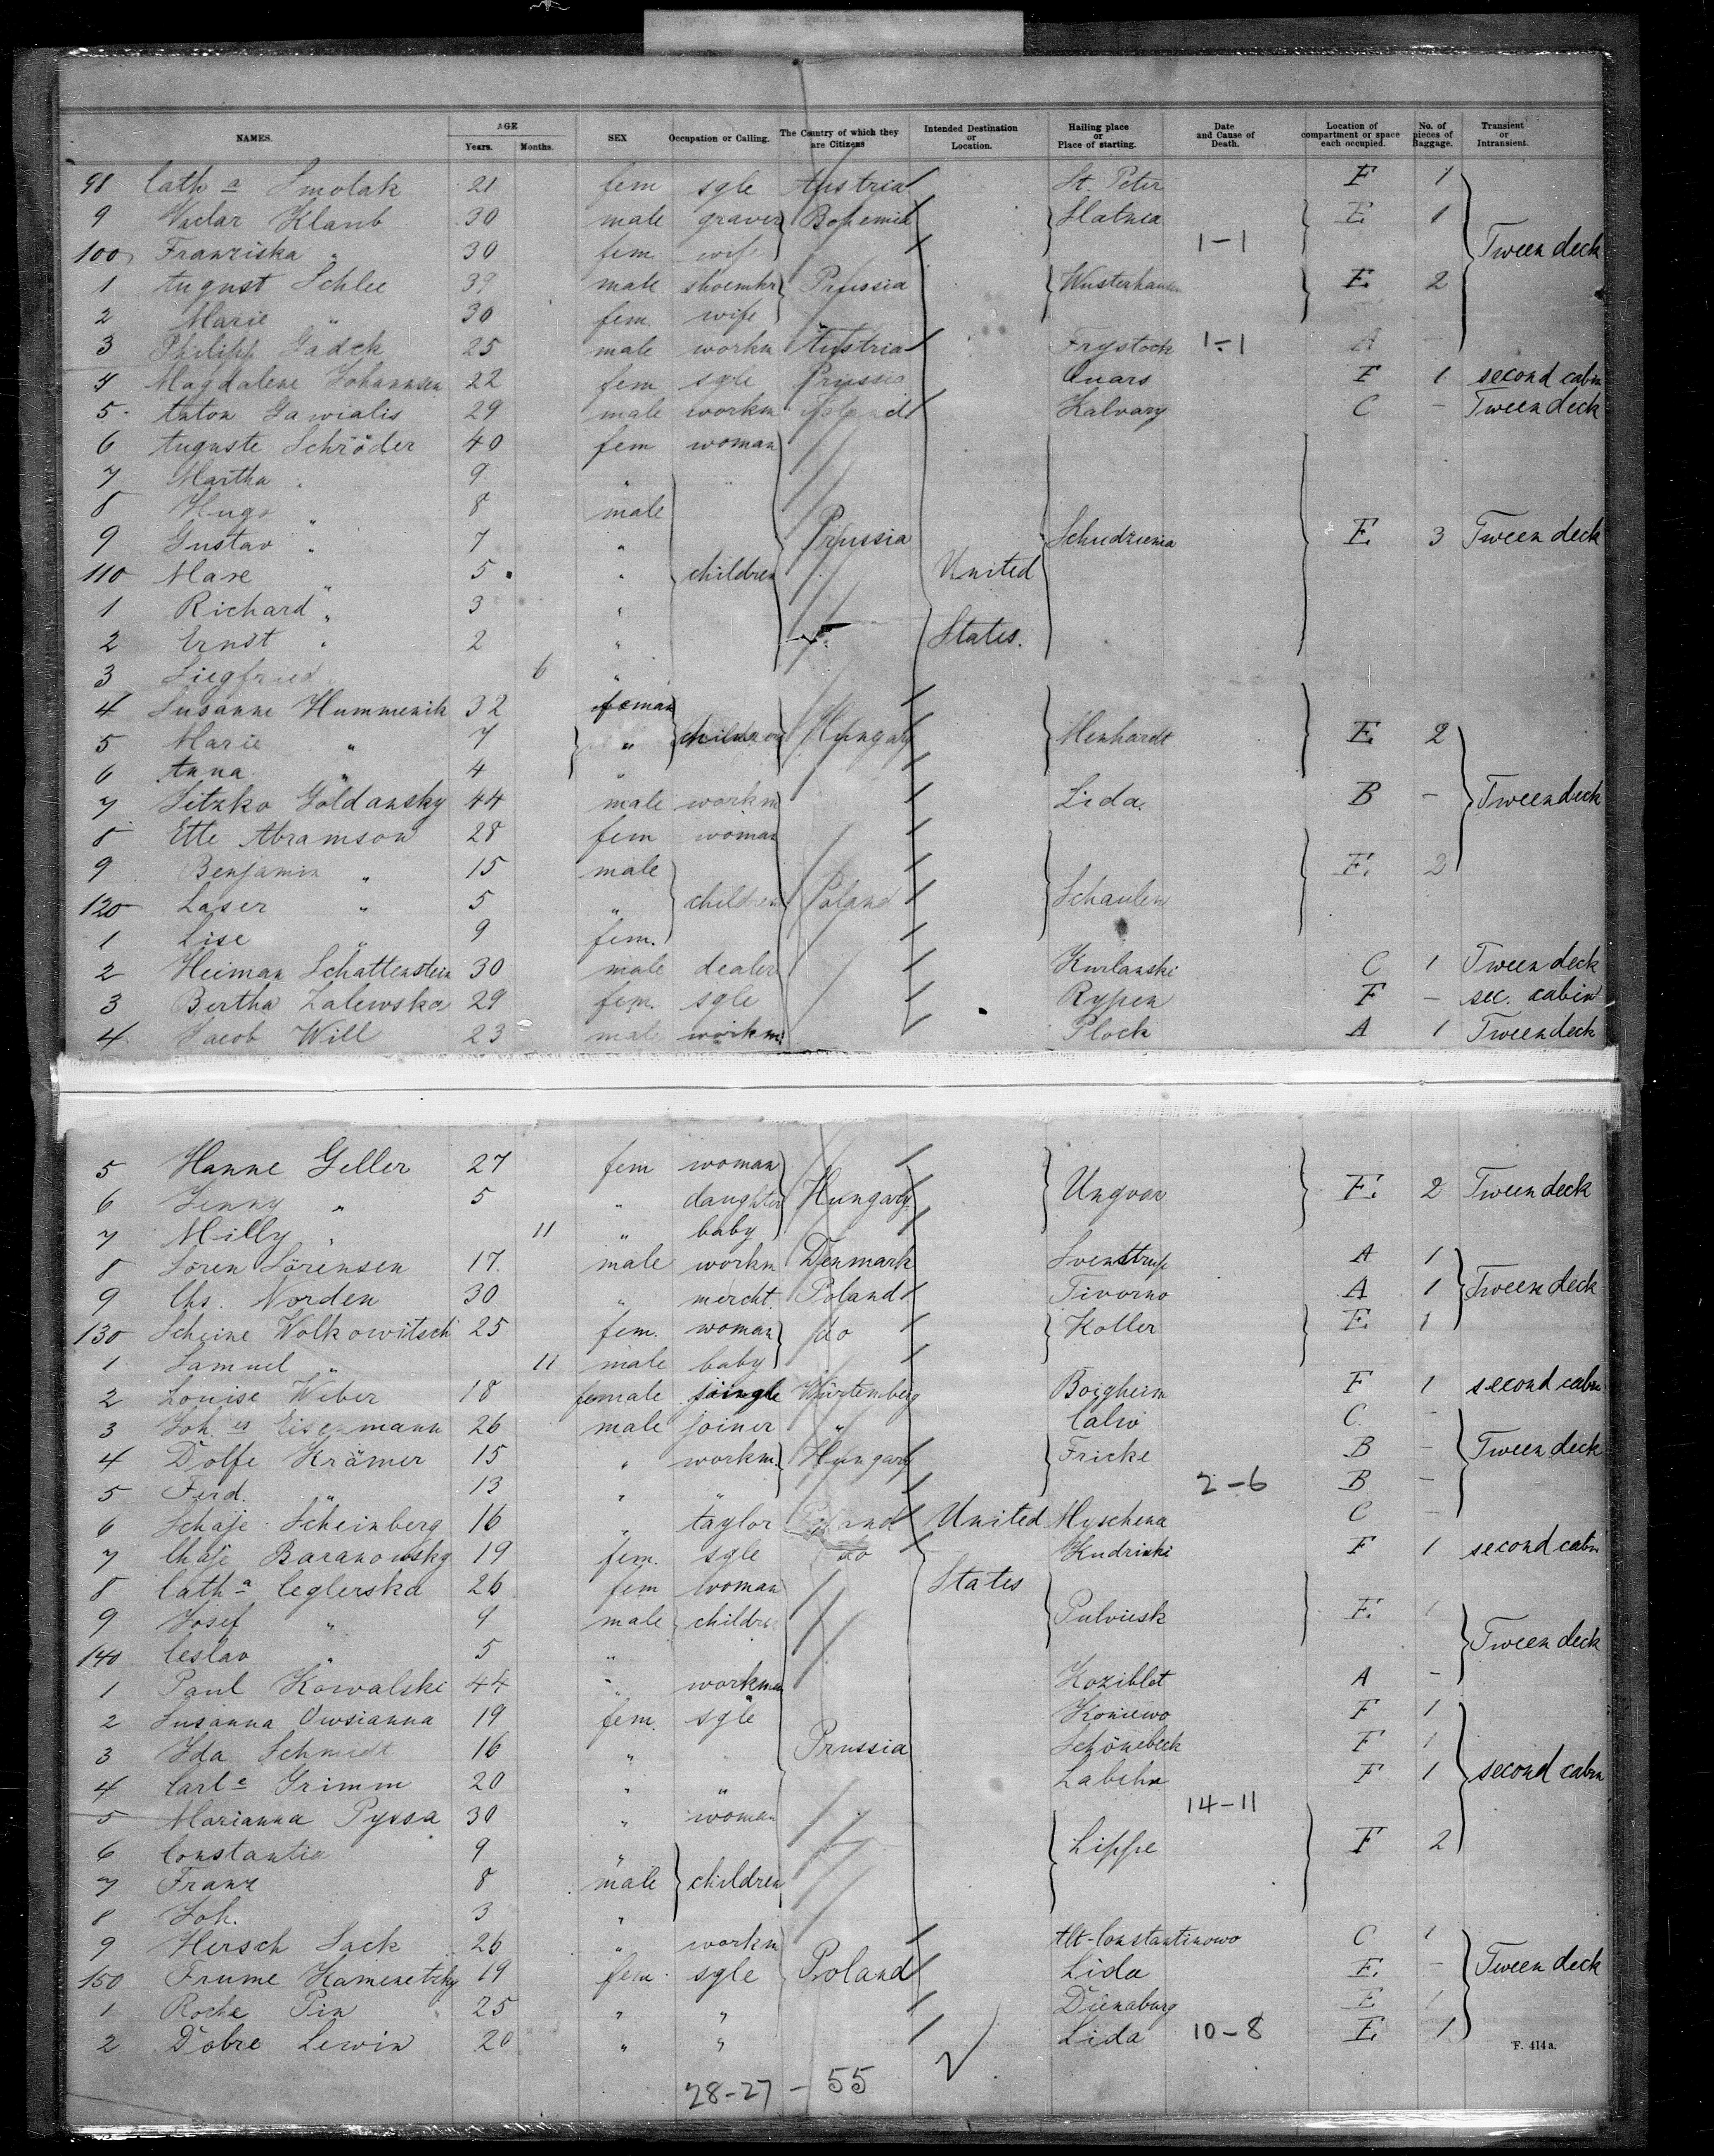 NAMES. AGE Years. Months. SEX Occupation or Calling. The Country of which they are Citizens Intended Destination or Location. Hailing place or Place of starting. Date and Cause of Death. Location of compartment or space each occupied. No. of pieces of Baggage. Transient or Intransient.
98 Cath a Smolak 21 fem sgle Austria St. Peter F 1
9 Vaclav Klaub 30 male graver Bohemia Slatnea E 1
100 Franziska " 30 fem wife 1-1 Tween deck
1 August Schlee 39 male shoemkr Prussia Wusterhausen E 2
2 Marie " 30 fem. wife
3 Philipp Gadek 25 male workm Austria Frystock 1-1 A -
4 Magdalene Johannsen 22 fem sgle Prussia Quars F 1 second cabin
5 Anton Gawialis 29 male workm Poland Kalvary C - Tween deck
6 Auguste Schröder 40 fem woman
7 Martha " 9 "
8 Hugo " 8 male
9 Gustav " 7 " Prussia Schudzienia E 3 Tween deck
110 Maxe " 5 " children United
1 Richard " 3 "
2 Ernst " 2 " States.
3 Siegfried 6 "
4 Susanne Hummenik 32 woman
5 Marie " 7 " children Hungary Menhardt E 2
6 Anna " 4 "
7 Sitzko Goldansky 44 male workm Lida B - Tween deck
8 Ette Abramson 28 fem woman
9 Benjamin " 15 male E. 2
120 Laser " 5 " children Poland Schaulen
1 Lise " 9 fem.
2 Heiman Schattenstein 30 male dealer Kurlanski C 1 Tween deck
3 Bertha Zalewska 29 fem. sgle Rypen F - sec. cabin
4 Jacob Will 23 male workm Plock A 1 Tween deck
5 Hanne Geller 27 fem woman
6 Jenny " 5 " daughter Hungary Ungvar E. 2 Tween deck
7 Milly " 11 " baby
8 Sören Sörensen 17. male workm Denmark Svenstrup A 1
9 Chs. Norden 30 " mercht. Poland Tivorno A 1 Tween deck
130 Scheine Wolkowitsch 25 fem. woman do Koller E 1
1 Samuel " 11 male baby
2 Louise Weber 18 female single Würtemberg Boigheim F 1 second cabin
3 Joh. es Eisenmann 26 male joiner " Calw C. -
4 Dolfe Krämer 15 " workm. Hungary Fricke B - Tween deck
5 Ferd. " 13 " " 2-6 B -
6 Schaje Scheinberg 16 " taylor Poland United Myschena C -
7 Chaje Baranowsky 19 fem. sgle do Kudrinki F 1 second cabin
8 Cath a Ceglerska 26 fem woman States
9 Josef " 9 male children Pulviesk E. 1
140 Ceslav " 5 " Tween deck
1 Paul Kowalski 44 " workman Koziblot A -
2 Susanna Owsianna 19 fem. sgle Koniewo F 1
3 Ida Schmidt 16 " Prussia Schönebeck F 1
4 Carl e Grimm 20 " " Labehn F 1 second cabin
5 Marianna Pyssa 30 " woman 14-11
6 Constantia 9 " Lippe F 2
7 Franz 8 male children
8 Joh. 3 "
9 Hersch Sack 26 " workm Alt-Constantinowo C 1
150 Frume Kamenetzky 19 fem. sgle Poland Lida E. - Tween deck
1 Roche Pin 25 " " Dünaburg E 1
2 Dobre Lewin 20 " " Lida 10-8 E 1
F. 414a.
28-27 - 55